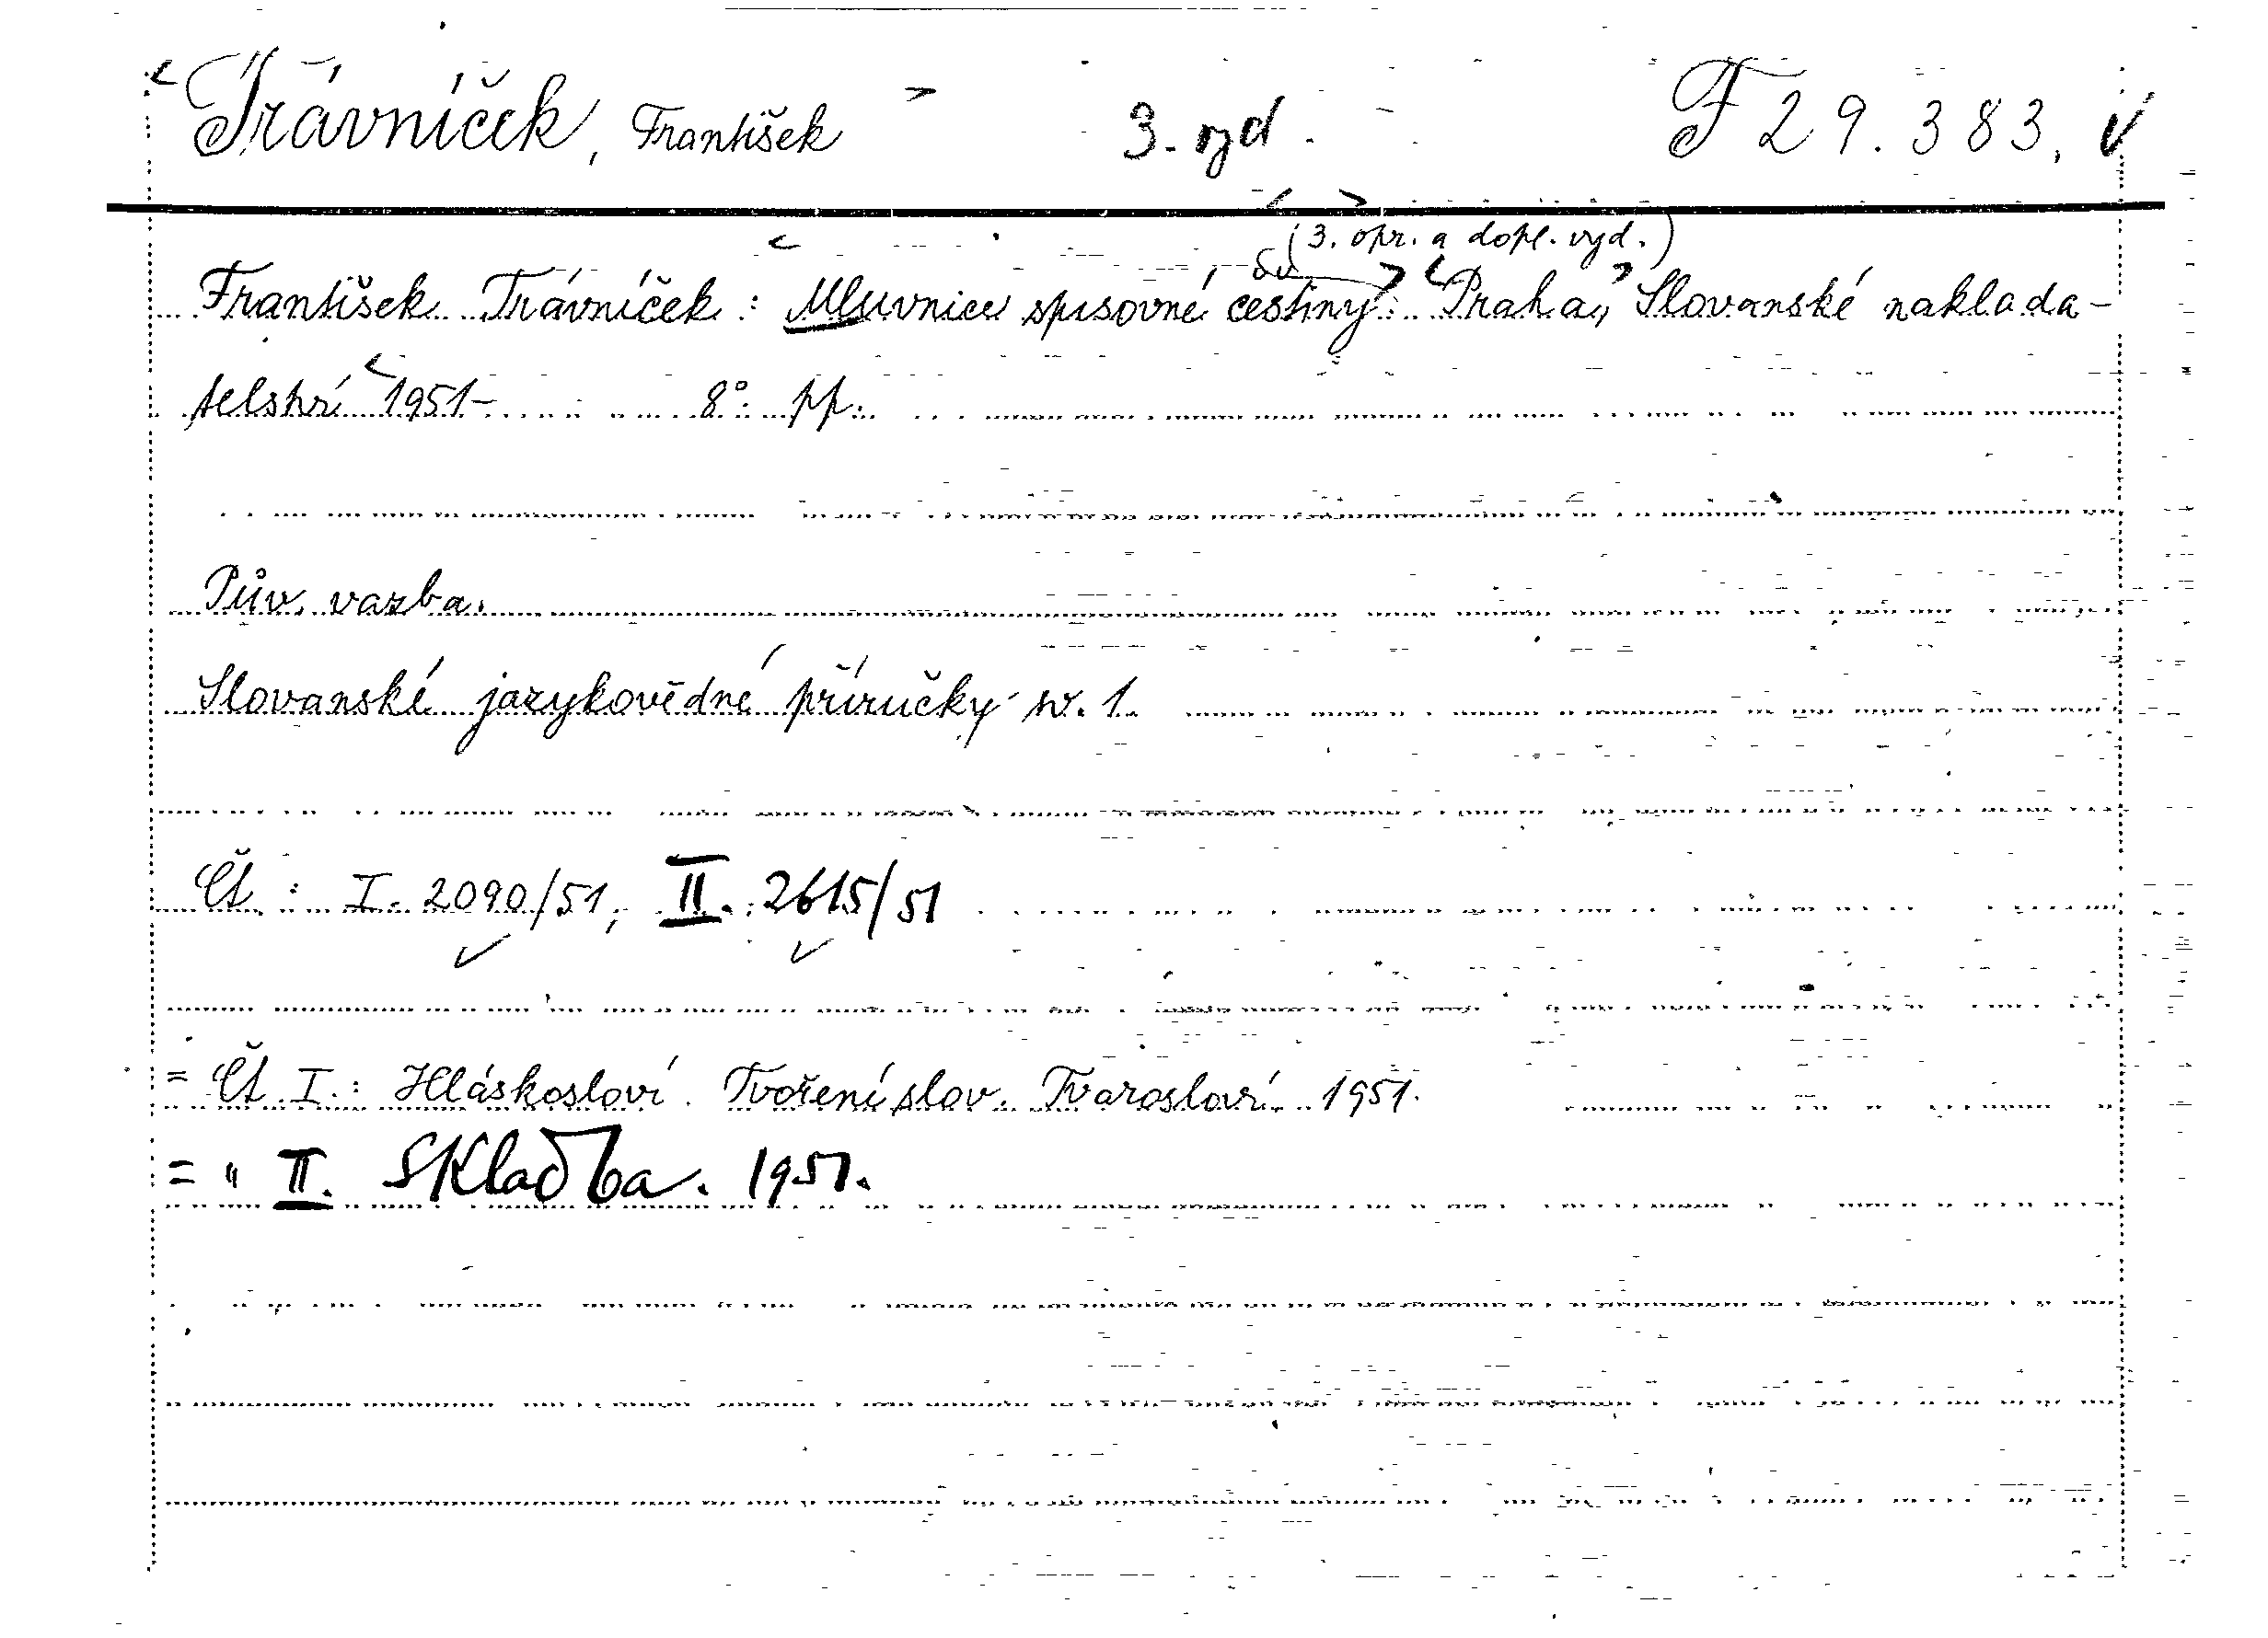 Trávníček, František 3. vyd. F 29.383. v
(3. opr. a dopl. vyd.)
František Trávníček: Mluvnice spisovné češtiny. Praha, Slovanské naklada-
telství 1951- 8° pp.
Pův. vazba.
Slovanské jazykovědné příručky sv. 1.
Čt.: I. 2090/51, II. 2615/51
= Čt I.: Hláskosloví. Tvoření slov. Tvarosloví. 1951.
= " II. Skladba. 1951.